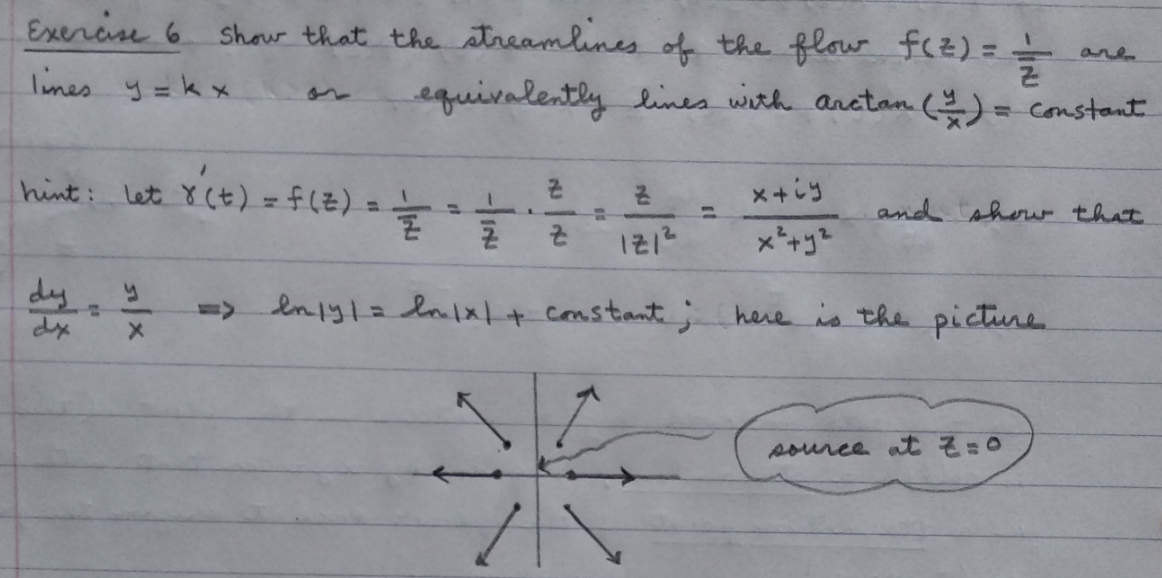 Exercise 6 Show that the streamlines of the flow f(z) = 1/z̅ are
lines y = kx or equivalently lines with arctan(y/x) = constant
hint: let γ'(t) = f(z) = 1/z̅ = 1/z̅ · z/z = z/|z|² = (x+iy)/(x²+y²) and show that
dy/dx = y/x ⇒ ln|y| = ln|x| + constant; here is the picture
source at z=0